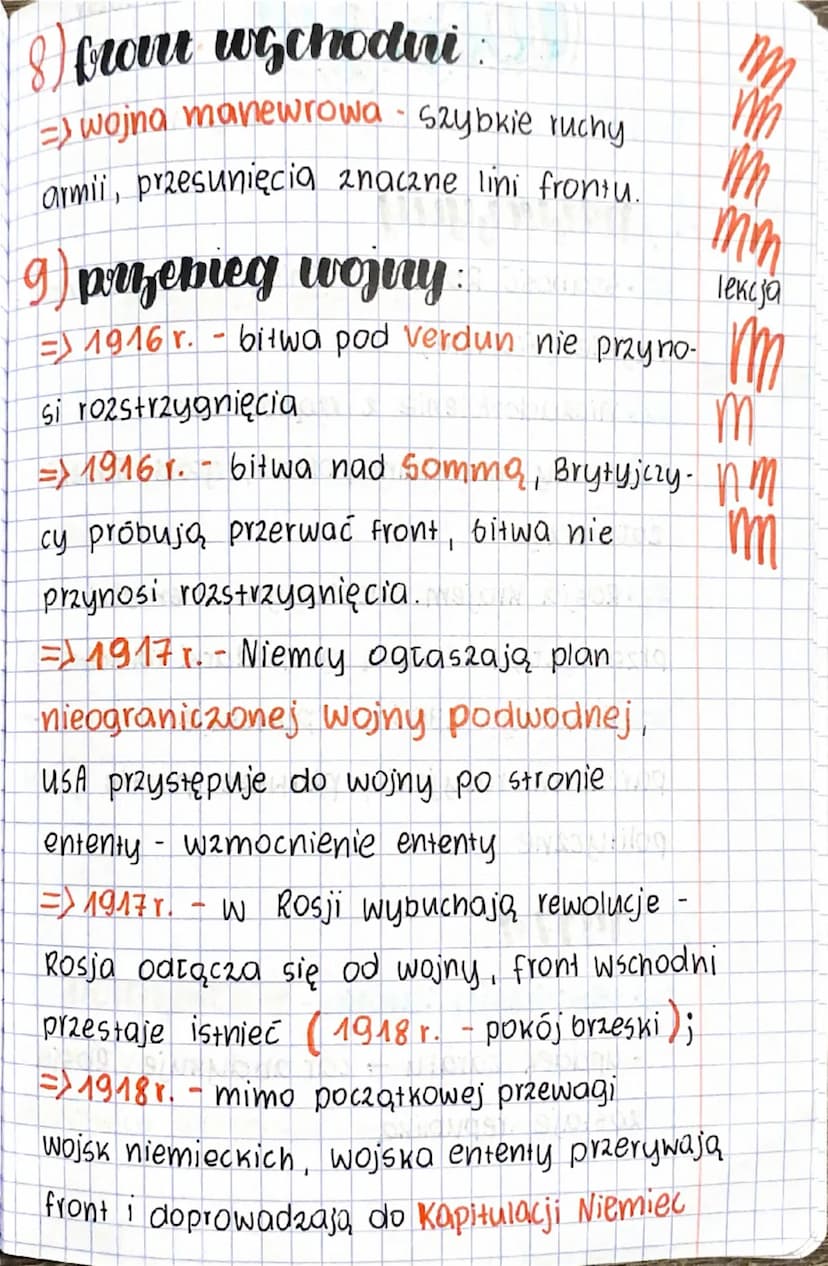 8) front wschodni:
=> wojna manewrowa - szybkie ruchy
armii, przesunięcia znaczne lini frontu.
9) przebieg wojny:
lekcja
=> 1916 r. - bitwa pod Verdun nie przyno-
si rozstrzygnięcia
=> 1916 r. - bitwa nad Sommą, Brytyjczy-
cy próbują przerwać front, bitwa nie
przynosi rozstrzygnięcia.
=> 1917 r. - Niemcy ogłaszają plan
nieograniczonej wojny podwodnej,
USA przystępuje do wojny po stronie
ententy - wzmocnienie ententy
=> 1917 r. - w Rosji wybuchają rewolucje -
Rosja odłącza się od wojny, front wschodni
przestaje istnieć (1918 r. - pokój brzeski);
=> 1918 r. - mimo początkowej przewagi
wojsk niemieckich, wojska ententy przerywają
front i doprowadzają do kapitulacji Niemiec